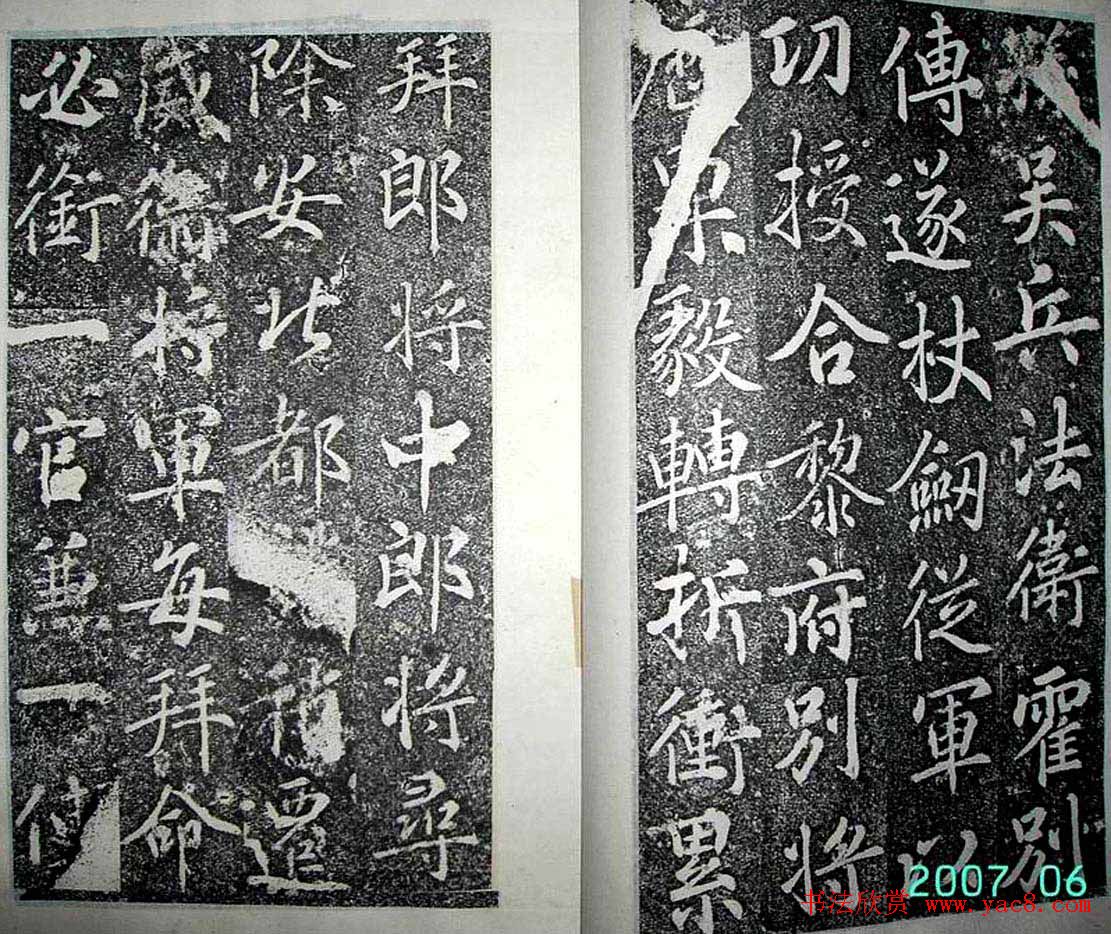 吴兵法衛霍別
傳遂杖劒従軍以
功授合黎府別将
果毅轉折衝累
拜郎将中郎将尋
除安北都䕶稍遷
威衛将軍每拜命
必銜一官兼一使
2007 06
书法欣赏 www.yac8.com